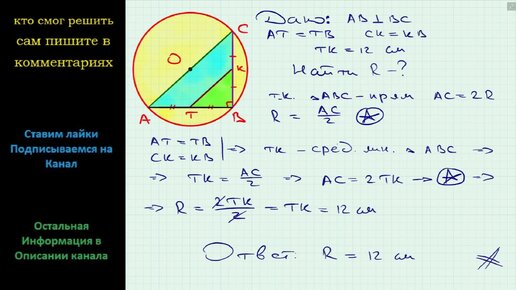 кто смог решить
сам пишите в
комментариях
Ставим лайки
Подписываемся на
Канал
Остальная
Информация в
Описании канала
C
O
K
A
T
B
Дано: AB ⊥ BC
AT = TB CK = KB
TK = 12 см
Найти R - ?
т.к. △ABC - прям AC = 2R
R = AC/2 Ⓐ
AT = TB
CK = KB | ⇒ TK - сред. лин. △ ABC ⇒
⇒ TK = AC/2 ⇒ AC = 2TK → Ⓐ ⇒
⇒ R = 2TK/2 = TK = 12 см
Ответ: R = 12 см